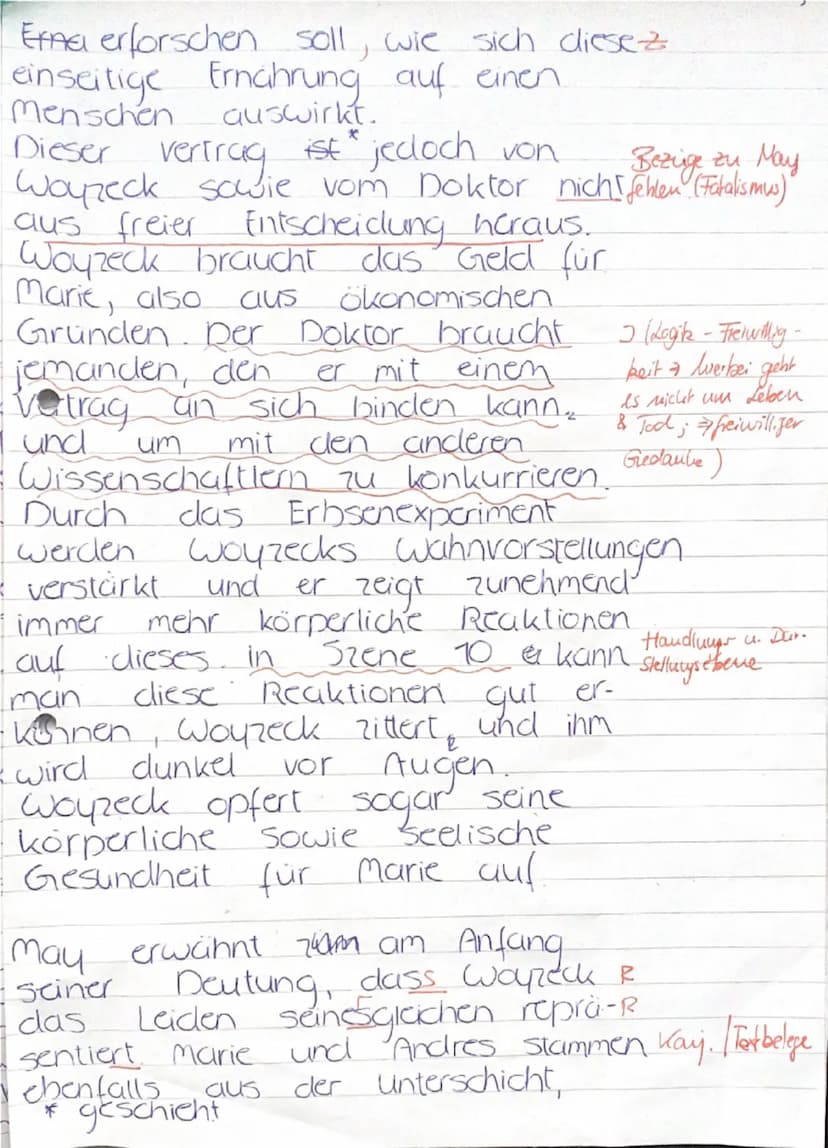 erforschen soll, wie sich diese Z
einseitige Ernährung auf einen
Menschen auswirkt.
Dieser Vertrag ist * jedoch von
Bezüge zu May
Woyzeck sowie vom Doktor nicht
fehlen (Fatalismus)
aus freier Entscheidung heraus.
Woyzeck braucht das Geld für
Marie, also aus ökonomischen
Gründen. Der Doktor braucht
(Logik - Freiwillig-
jemanden, den er mit einem
keit → hierbei geht
Vertrag an sich binden kann,
es nicht um Leben
und um mit den anderen
& Tod; → freiwilliger
Wissenschaftlern zu konkurrieren.
Gedanke)
Durch das Erbsenexperiment
werden Woyzecks Wahnvorstellungen
verstärkt und er zeigt zunehmend
immer mehr körperliche Reaktionen
auf dieses. in Szene 10 kann
Handlungs u. Dar-
stellungsebene
man diese Reaktionen gut er-
kennen, Woyzeck zittert, und ihm
Z
wird dunkel vor Augen.
Woyzeck opfert sogar seine
körperliche sowie seelische
Gesundheit für Marie auf.
May erwähnt am Anfang
seiner Deutung, dass Woyzeck R
das Leiden seinesgleichen reprä- R
sentiert. Marie und Andres stammen Konj. / Textbelege
ebenfalls aus der Unterschicht,
* geschieht